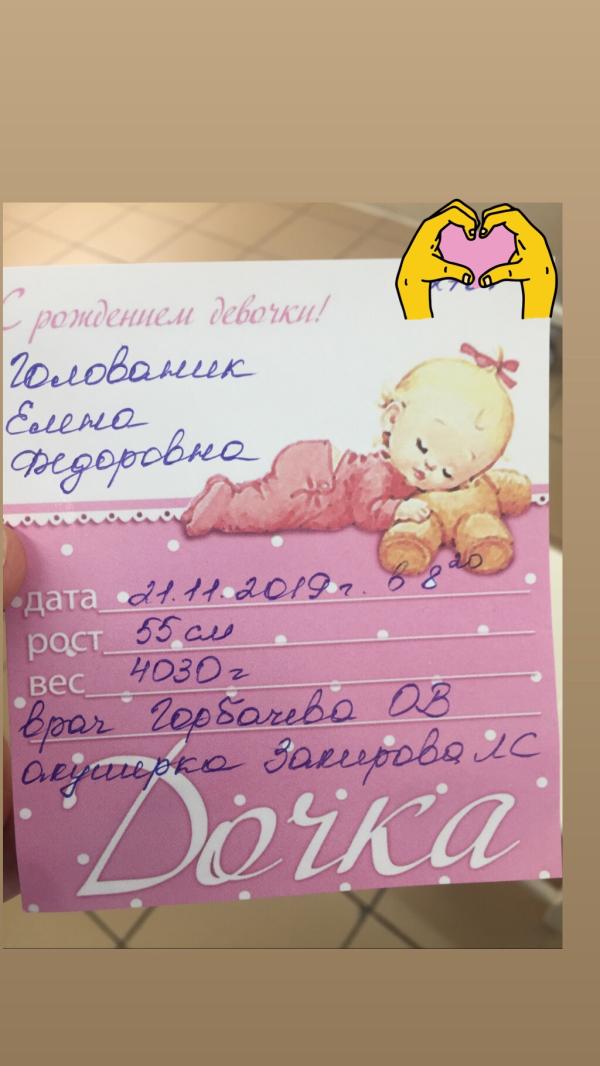 С рождением девочки!
Голованик
Елена
Федоровна
дата 21.11.2019 г. в 8 20
рост 55 см
вес 4030 г
врач Горбачева ОВ
акушерка Закирова ЛС
Дочка